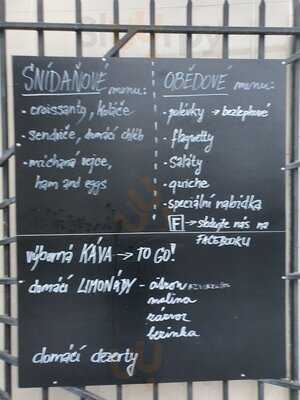 SNÍDAŇOVÉ menu:
- croissanty, koláče
- sendviče, domácí chléb
- míchaná vejce,
ham and eggs
OBĚDOVÉ menu:
- polévky → bezlepkové
- flaguetty
- Saláty
- quiche
- speciální nabídka
F → sledujte nás na
FACEBOOKU
výborná KÁVA → TO GO!
domácí LIMONÁDY - citron
malina
zázvor
bezinka
domácí dezerty